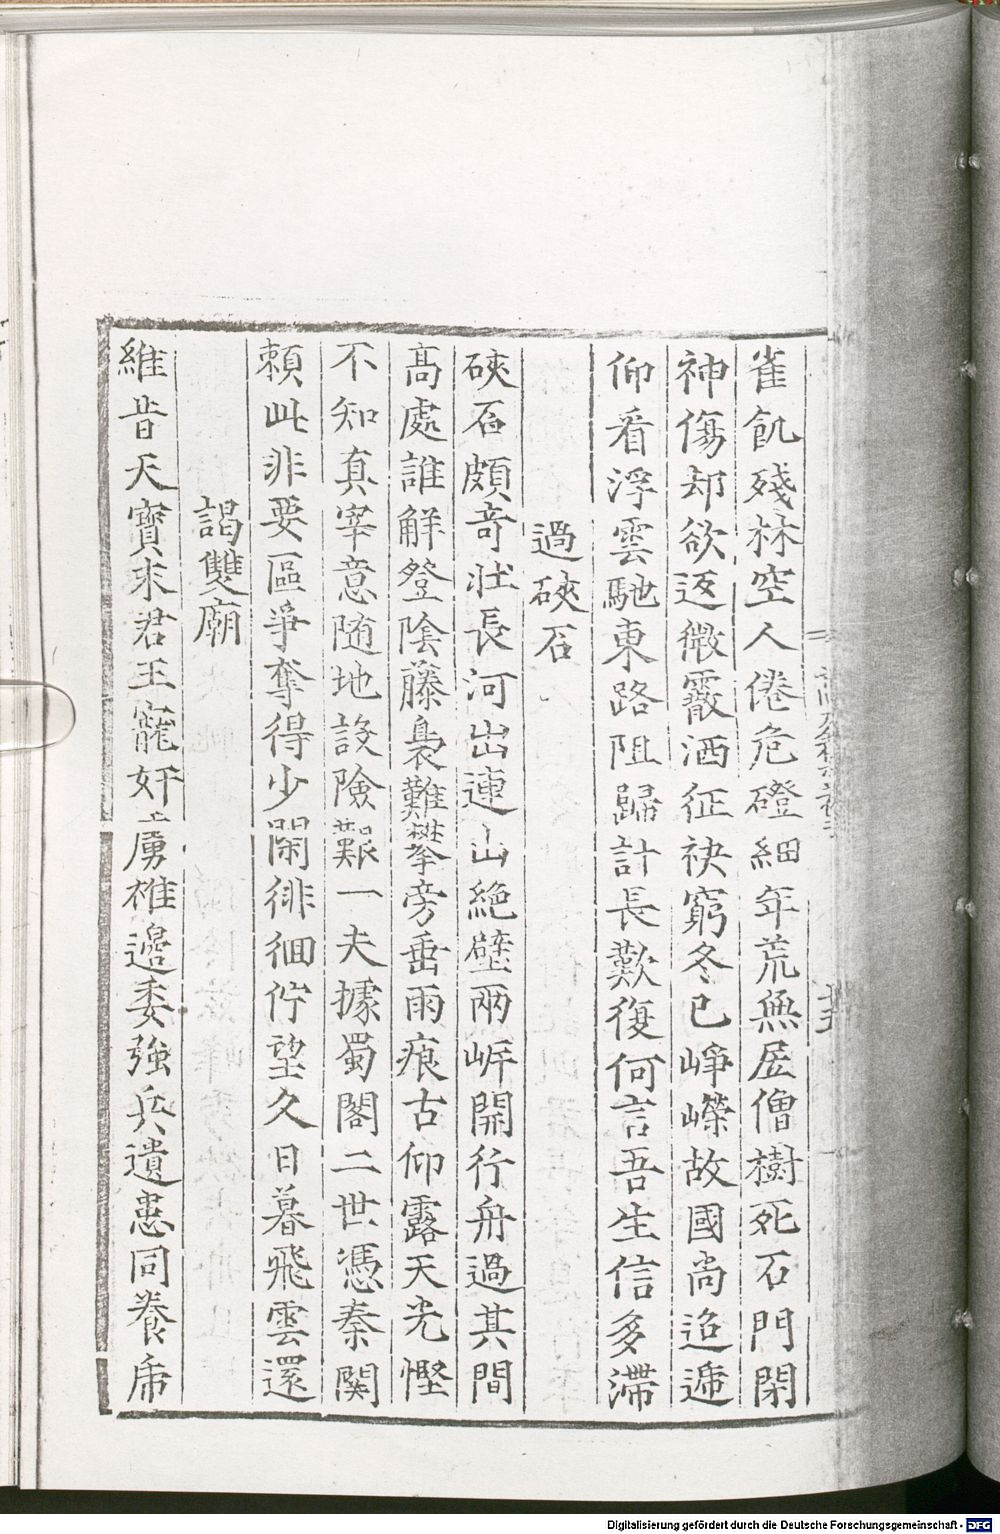 雀飢殘林空人倦危磴細年荒無居僧樹死石門閑
神傷却欲返微霰洒征袂窮冬已崢嶸故國尚迢遞
仰看浮雲馳東路阻歸計長歎復何言吾生信多滯
過硤石
硤石頗奇壯長河出連山絶壁兩岸開行舟過其間
高處誰觧登陰藤裊難攀旁垂雨痕古仰露天光慳
不知真宰意随地設險艱一夫據蜀閣二世憑秦関
頼此非要區爭奪得少閑徘徊佇望久日暮飛雲還
謁雙廟
維昔天寶末君王寵奸雄邊委強兵遺患同養虎
Digitalisierung gefördert durch die Deutsche Forschungsgemeinschaft - DFG